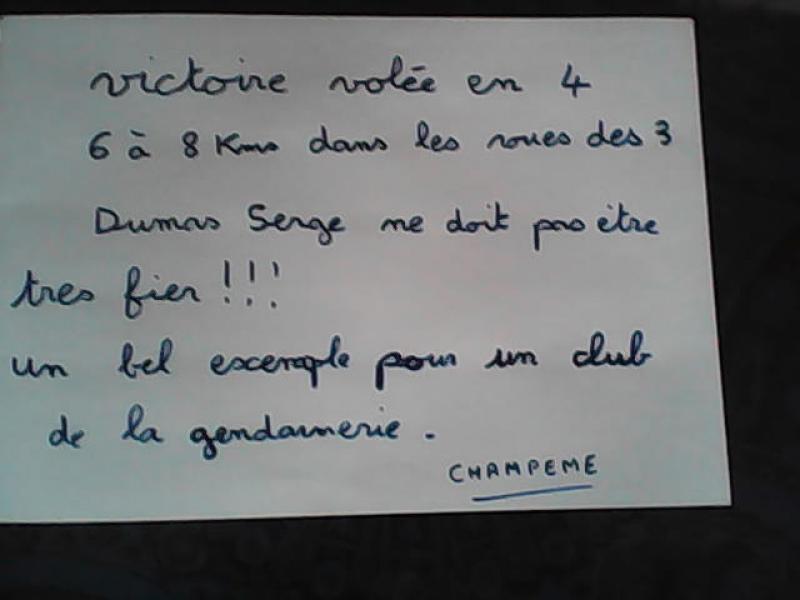 victoire volée en 4
6 à 8 Kms dans les roues des 3
Dumas Serge ne doit pas être
tres fier !!!
un bel exemple pour un club
de la gendarmerie.
CHAMPEME